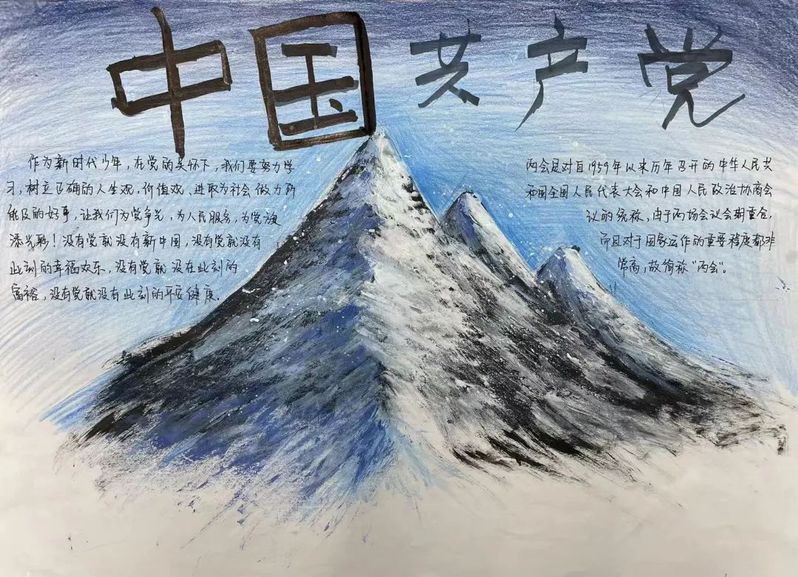 中国共产党
作为新时代少年，在党的关怀下，我们要努力学
习，树立正确的人生观，价值观、进取为社会做力所
能及的好事，让我们为党争光，为人民服务，为党旗
添光彩！没有党就没有新中国，没有党就没有
此刻的幸福欢乐，没有党就没在此刻的
富裕，没有党就没有此刻的平安健康。
两会是对自1959年以来历年召开的中华人民共
和国全国人民代表大会和中国人民政治协商会
议的统称，由于两场会议会期重合，
而且对于国家运作的重要程度都非
常高，故简称“两会”。